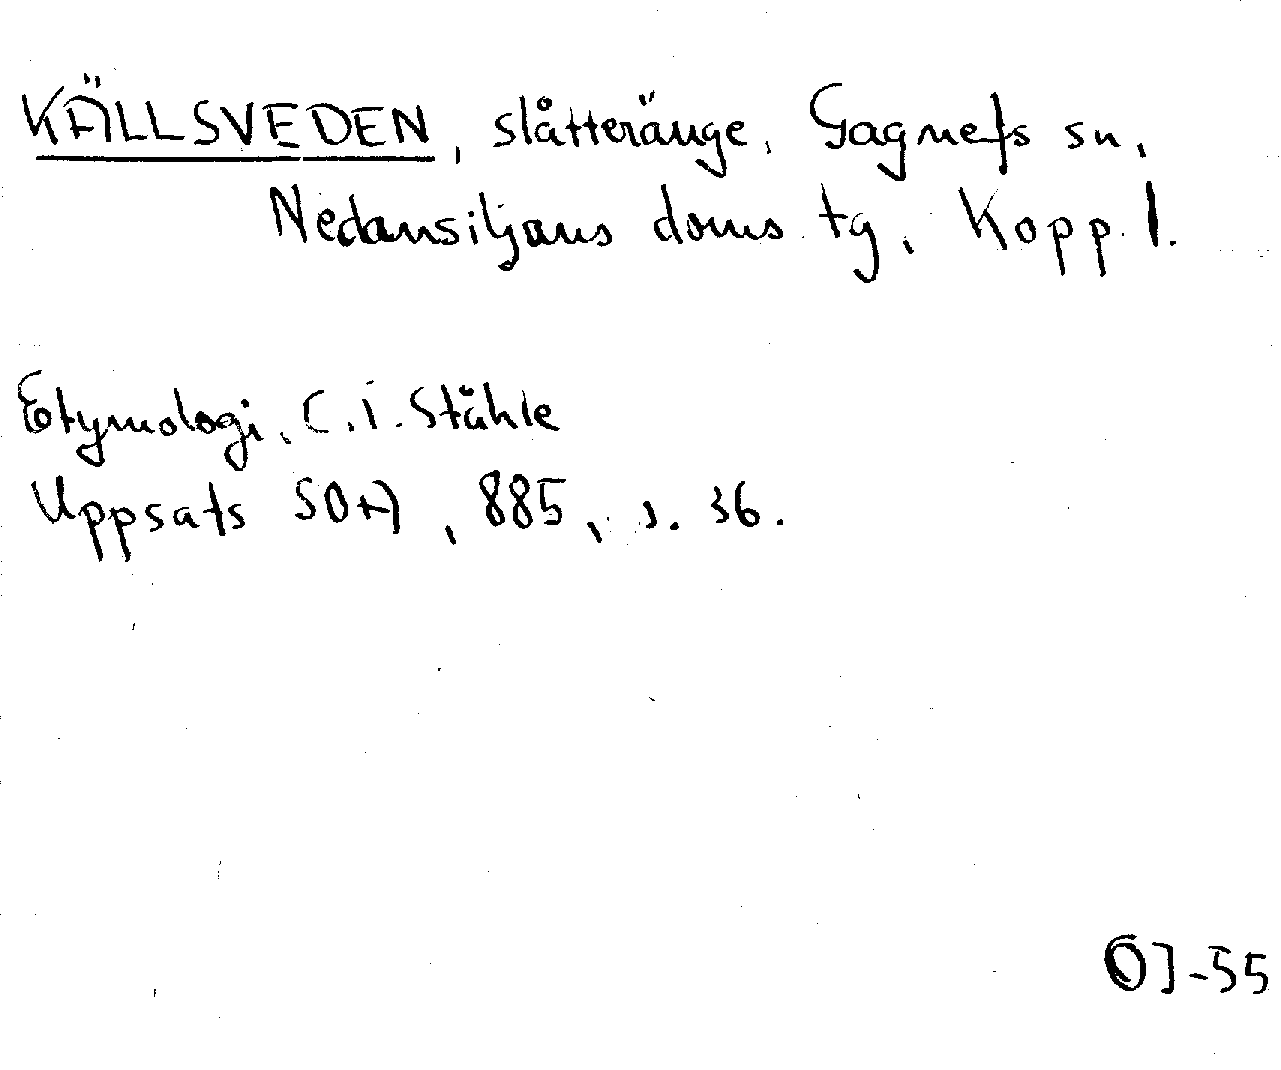 KÄLLSVEDEN, slåtteränge, Gagnefs sn,
Nedansiljans doms. tg, Kopp. l.
Etymologi, C.I. Ståhle
Uppsats SOA, 885, s. 36.
OJ-55